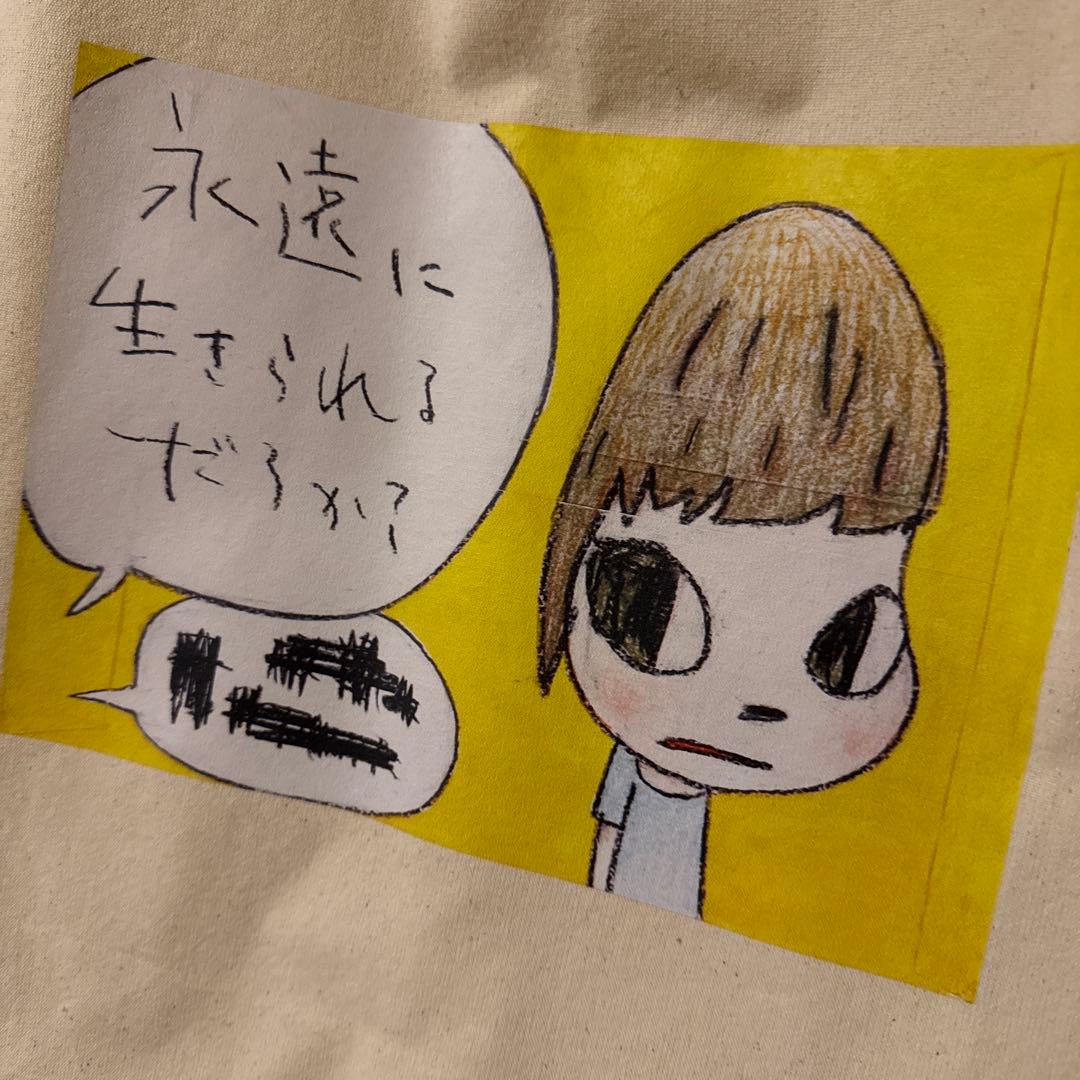 永遠に
生きられる
だろうか?